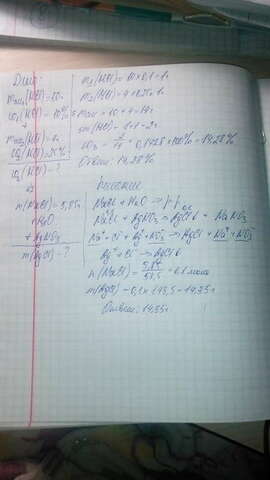 Дано:
m₁(KCl)=10г
ω₁(KCl)=10%
+
m₂(KCl)=4г
ω₂(KCl)=25%
ω₃(KCl)-?
m₁(KCl)=10*0,1=1г
m₂(KCl)=4*0,25=1г
=10+4=14г
=1+1=2г
ω₃=2/14=0,1428*100%=14,28%
Ответ: 14,28%
m(NaCl)=5,85г
H₂O
+AgNO₃
m(AgCl)-?
Решение
NaCl+H₂O→р-р
NaCl+AgNO₃→AgCl↓+NaNO₃
Na⁺+Cl⁻+Ag⁺+NO₃⁻→AgCl↓+Na⁺+NO₃⁻
Ag⁺+Cl⁻→AgCl↓
n(NaCl)=
=0,1 моль
m(AgCl)=0,1*143,5=14,35г
Ответ: 14,35г